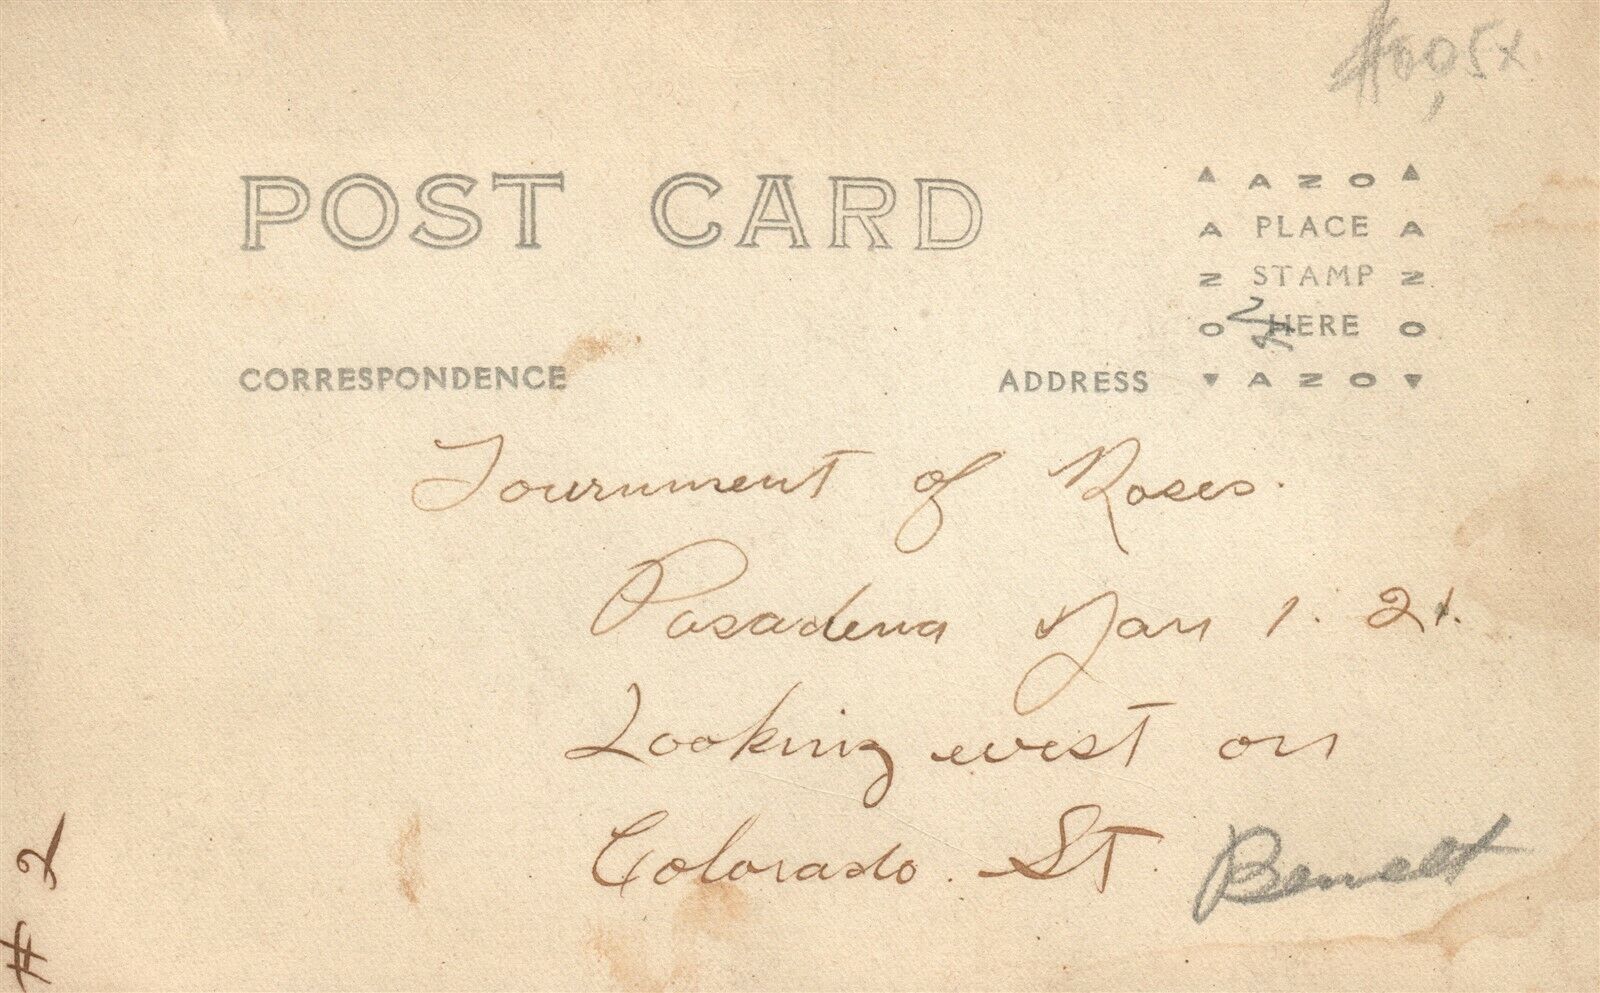 POST CARD
▲ AZO ▲
A PLACE A
N STAMP N
O HERE O
▼ AZO ▼
CORRESPONDENCE
ADDRESS
Tournment of Roses.
Pasadena Jan 1. 21.
Looking west on
Colorado. St.
# 2